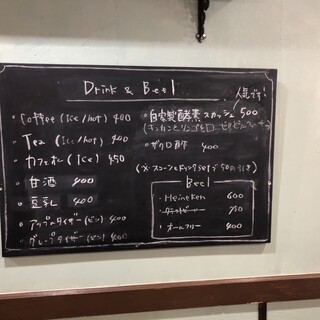 Drink & Beel
・Coffee (Ice/hot) 400
・Tea (Ice/hot) 400
・カフェオレ (Ice) 450
・甘酒 400
・豆乳 400
・アップルタイザー (ビン) 400
・グレープタイザー (ビン) 400
人気です!
・自家製酵素スカッシュ 500
・ザクロ酢 400
(※スコーンとドリンクsetで50円引き)
Beel
・Heineken 600
750
・オールフリー 400